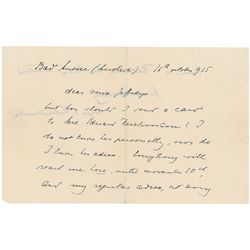 Bad Aussee (Austria) 16th october 925
dear miss Jeffreys
but how should I send a card
to Mrs. Edward ? I
do not know her personally, nor do
I know his adress. Everything will
reach me here, until november 10th,
and my regular adress, at any